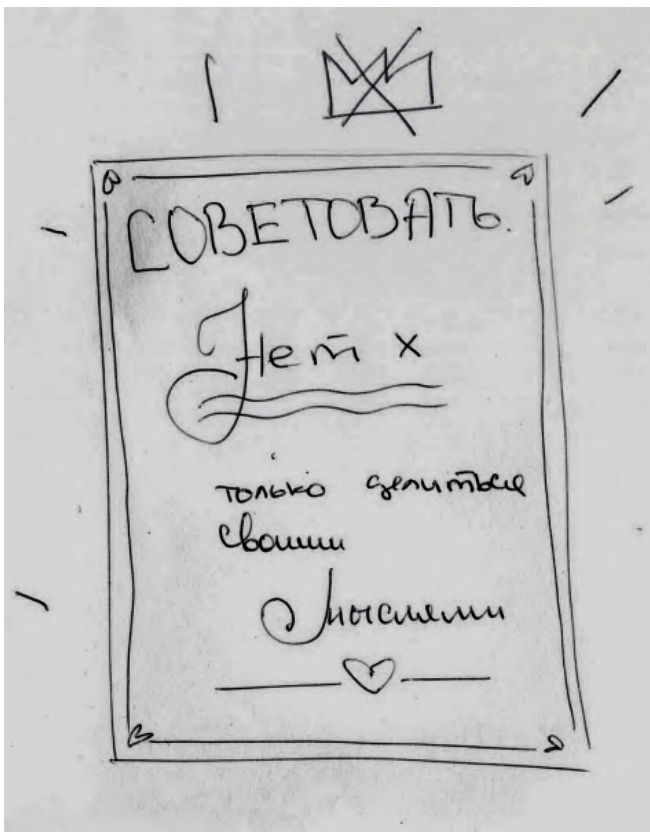 СОВЕТОВАТЬ.
Нет x
только делиться
своими
мыслями